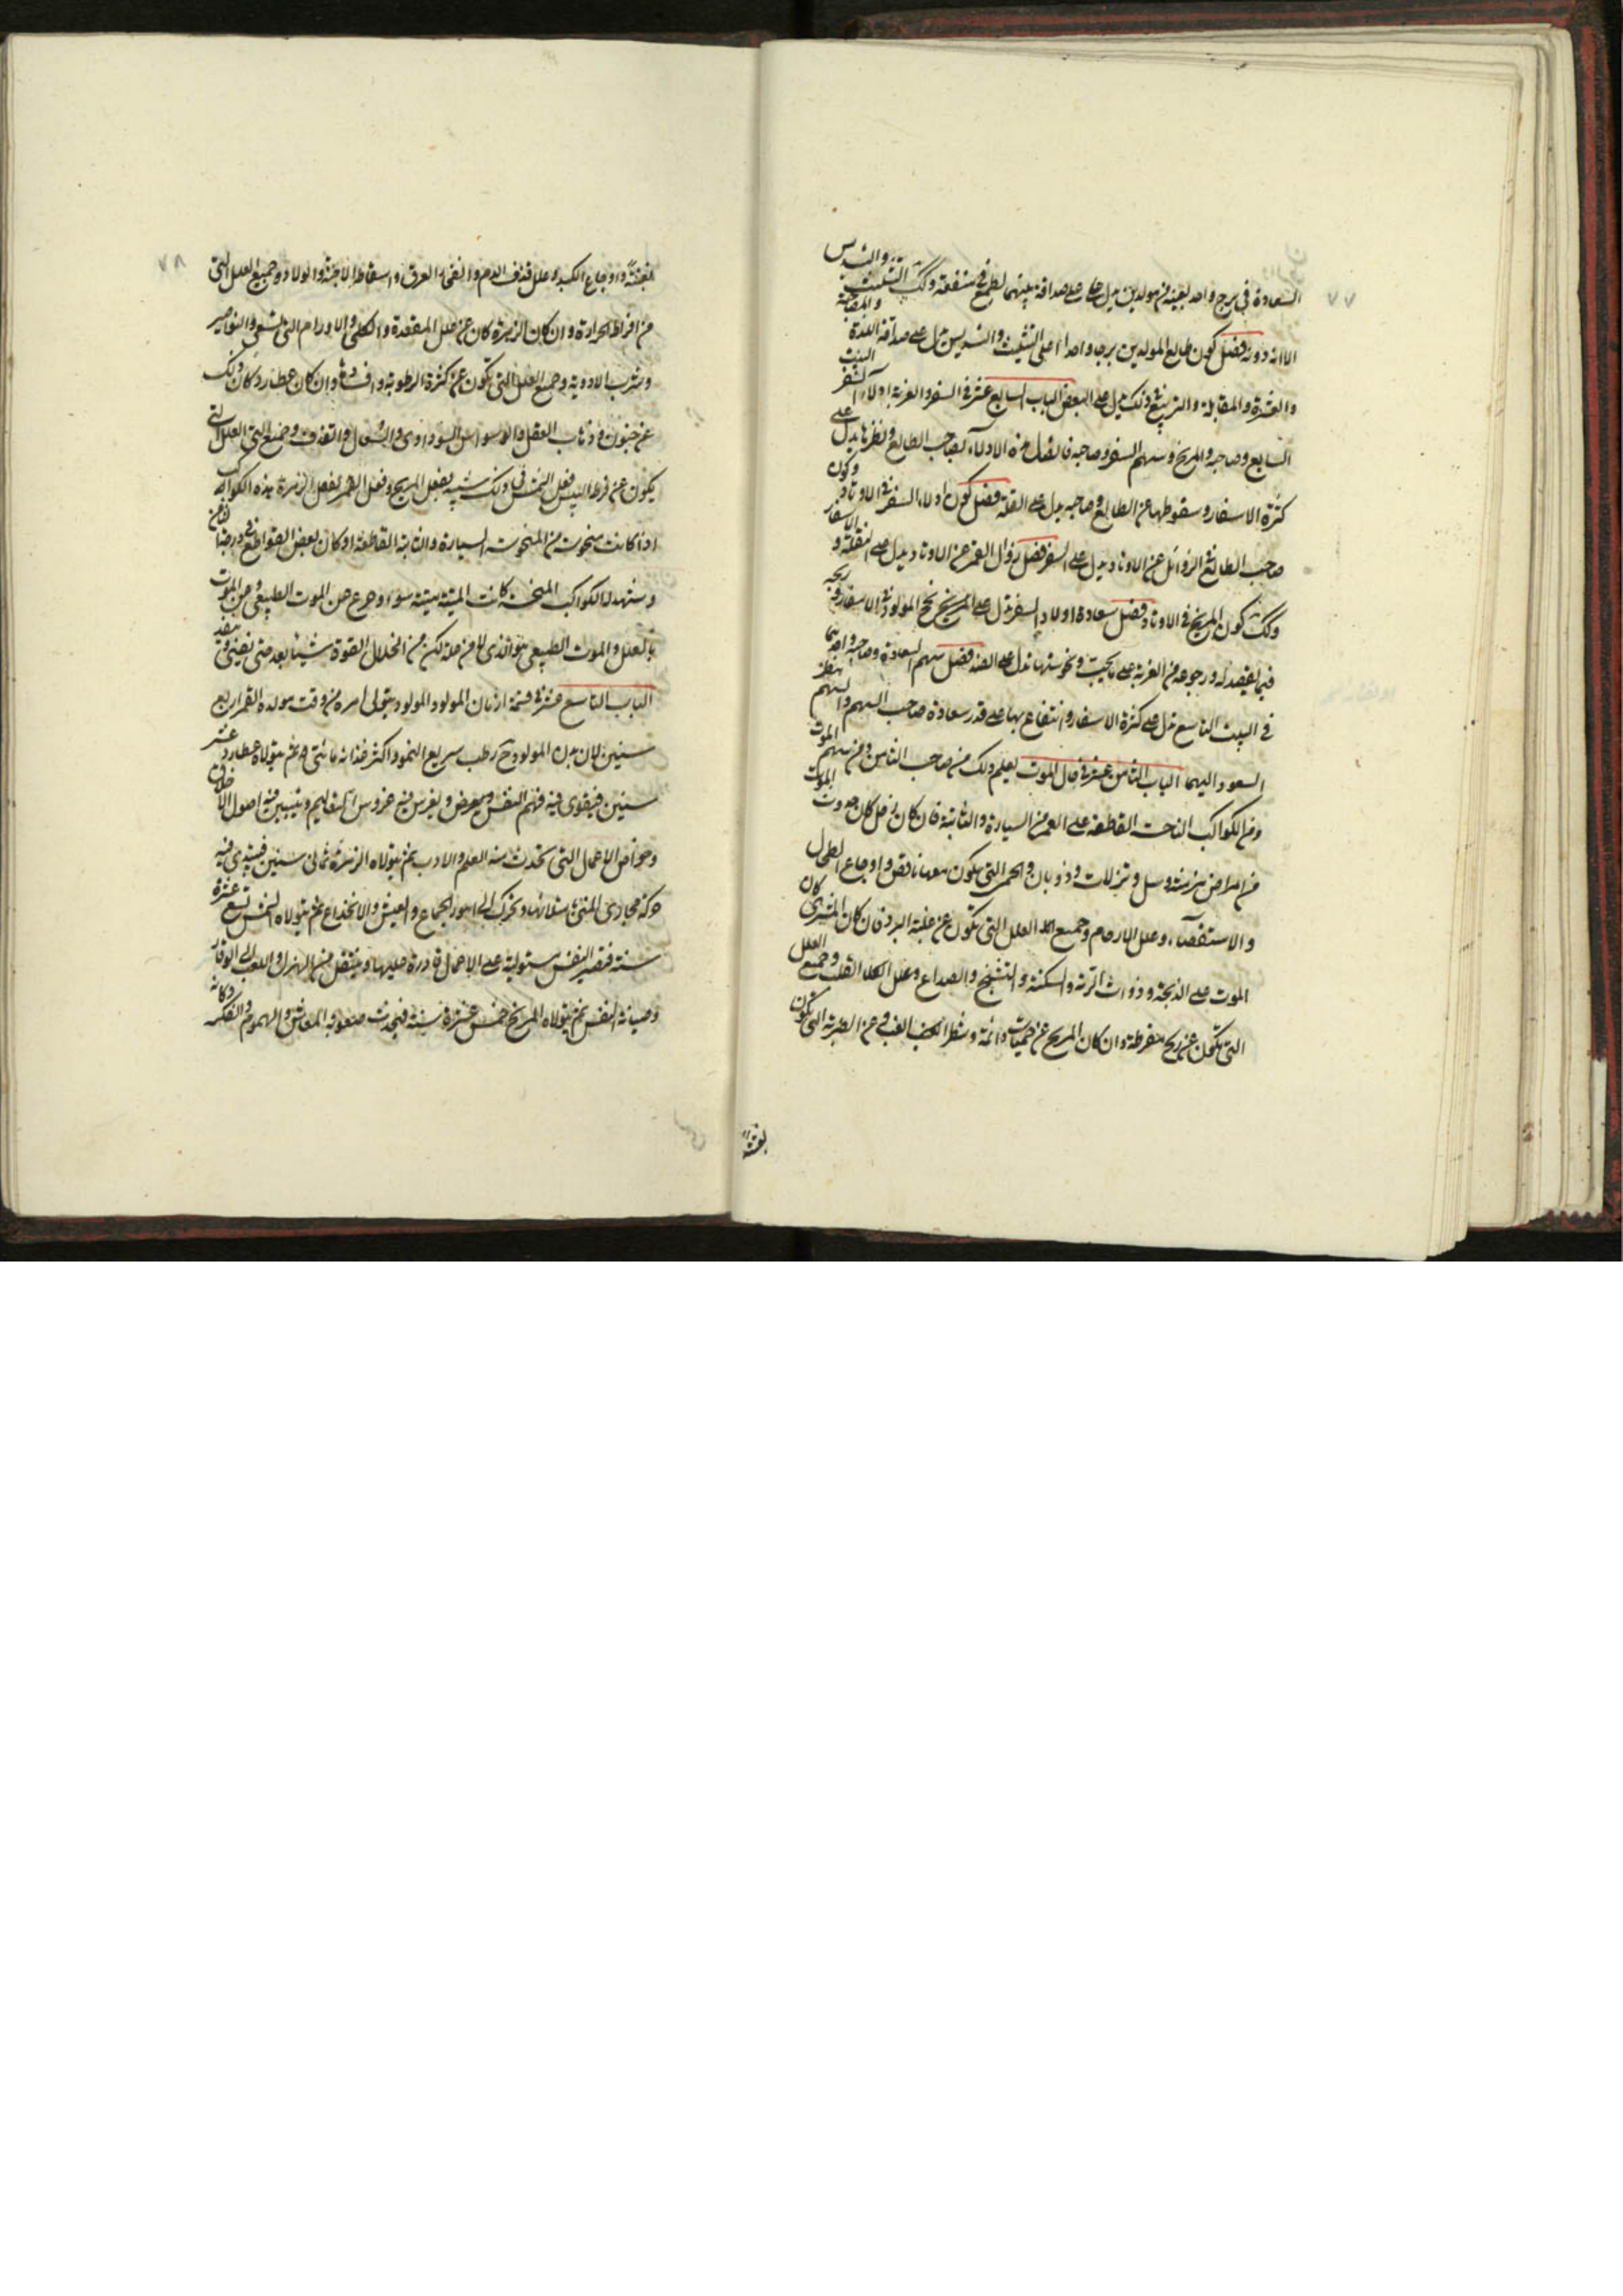 ٧٧
السعادة في برج واحد بعينه من مولدين يدل على صداقة بينهما لطمع في منفعة وكك التثليث والتسديس
الا انه دونه فصل كون طالع المولدين برجا واحدا او على التثليث والتسديس يدل على صداقة اللذة والمصاحبة
والعشرة والمقابلة والتربيع في ذلك يدل على البعض الباب السابع عشر في السفر والغربة اولاء السفر البيت
السابع وصاحبه والمريخ وسهم السفر وصاحبه فاتصال هذه الادلاء بصاحب الطالع ونظرها يدل على
كثرة الاسفار وسقوطها عن الطالع وصاحبه يدل على القلة فصل كون ادلاء السفر في الاوتاد وكون
صاحب الطالع في الزوائل عن الاوتاد يدل على السفر فصل زوال القمر عن الاوتاد يدل على النقلة والاسفار
وكك كون المريخ في الاوتاد فصل سعادة ادلاء السفر تدل على نجح المولود في الاسفار وربحه
فيما يقصد له ورجوعه من الغربة على ما يحب ونحوستها تدل على الضد فصل سهم السعادة وصاحبه واحدهما
في البيت التاسع تدل على كثرة الاسفار وانتفاع بها على قدر سعادة صاحب السهم والسهم بنظر
السعود اليهما الباب الثامن عشر في حال الموت يعلم ذلك من صاحب الثامن ومن سهم الموت
ومن الكواكب الناحسة القاطعة على العمر من السيارة والثابتة فان كان زحل كان حدوث الموت
من امراض مزمنة وسل ونزلات وذوبان والحمى التي يكون معها نافض واوجاع الطحال
والاستسقاء وعلل الارحام وجميع العلل التي تكون عن غلبة البرد فان كان المشتري كان
الموت على الذبحة وذوات الرئة والسكتة والتشنج والصداع وعلل القلب وجميع العلل
التي تكون عن ريح مفرطة وان كان المريخ عن حميات دائمة وشطر الغب وعن الضربة التي تكون
بغتة
٧٨
بغتة واوجاع الكبد وعلل قذف الدم وانفجار العرق واسقاط الاجنة والولاد وجميع العلل التي
من افراط الحرارة وان كان الزهرة كان عن علل المقعدة والكلى والاورام التي تسعى والنواصير
وشرب الادوية وجميع العلل التي تكون عن كثرة الرطوبة وافساده وان كان عطارد كان ذلك
عن جنون وذهاب العقل والوسواس السوداوي والسعال والقذف وجميع العلل التي
يكون عن فرط اليبس فعل الشمس في ذلك شبيه بفعل المريخ وفعل القمر بفعل الزهرة هذه الكواكب
اذا كانت منحوسة من المنحوسة السيارة والثابتة القاطعة او كان بعض القواطع في درجة الثامن
وشهد له الكواكب المنحسة كانت الميتة ميتة سوء وخرج عن الموت الطبيعي ومن الموت
بالعلل والموت الطبيعي هو الذي لا من علة لكن من انحلال القوة شيئا بعد شيء حتى يفنى
الباب التاسع عشر في قسمة ازمان المولود المولود يتولى امره من وقت مولده القمر اربع
سنين لان بدن المولود ح رطب سريع النمو واكثر غذائه مائي ثم يتولاه عطارد عشر
سنين فيقوى فيه فهم النفس ويعرض ويغرس فيه غروس التعاليم ويتبين فيه اصول الاخلاق
وخواص الاعمال التي تحدث منه العلم والادب ثم يتولاه الزهرة ثماني سنين فيبتدي فيه
حركة مجاري المني في امتلائها وتحرك الى امور الجماع والعيش والانخداع ثم يتولاه الشمس تسع عشرة
سنة فتصير النفس مستولية على الاعمال قادرة عليها وينتقل من الهزل واللعب الى الوقار
وصيانة النفس ثم يتولاه المريخ خمس عشرة سنة فيحدث صعوبة المعاش والهموم والفكر